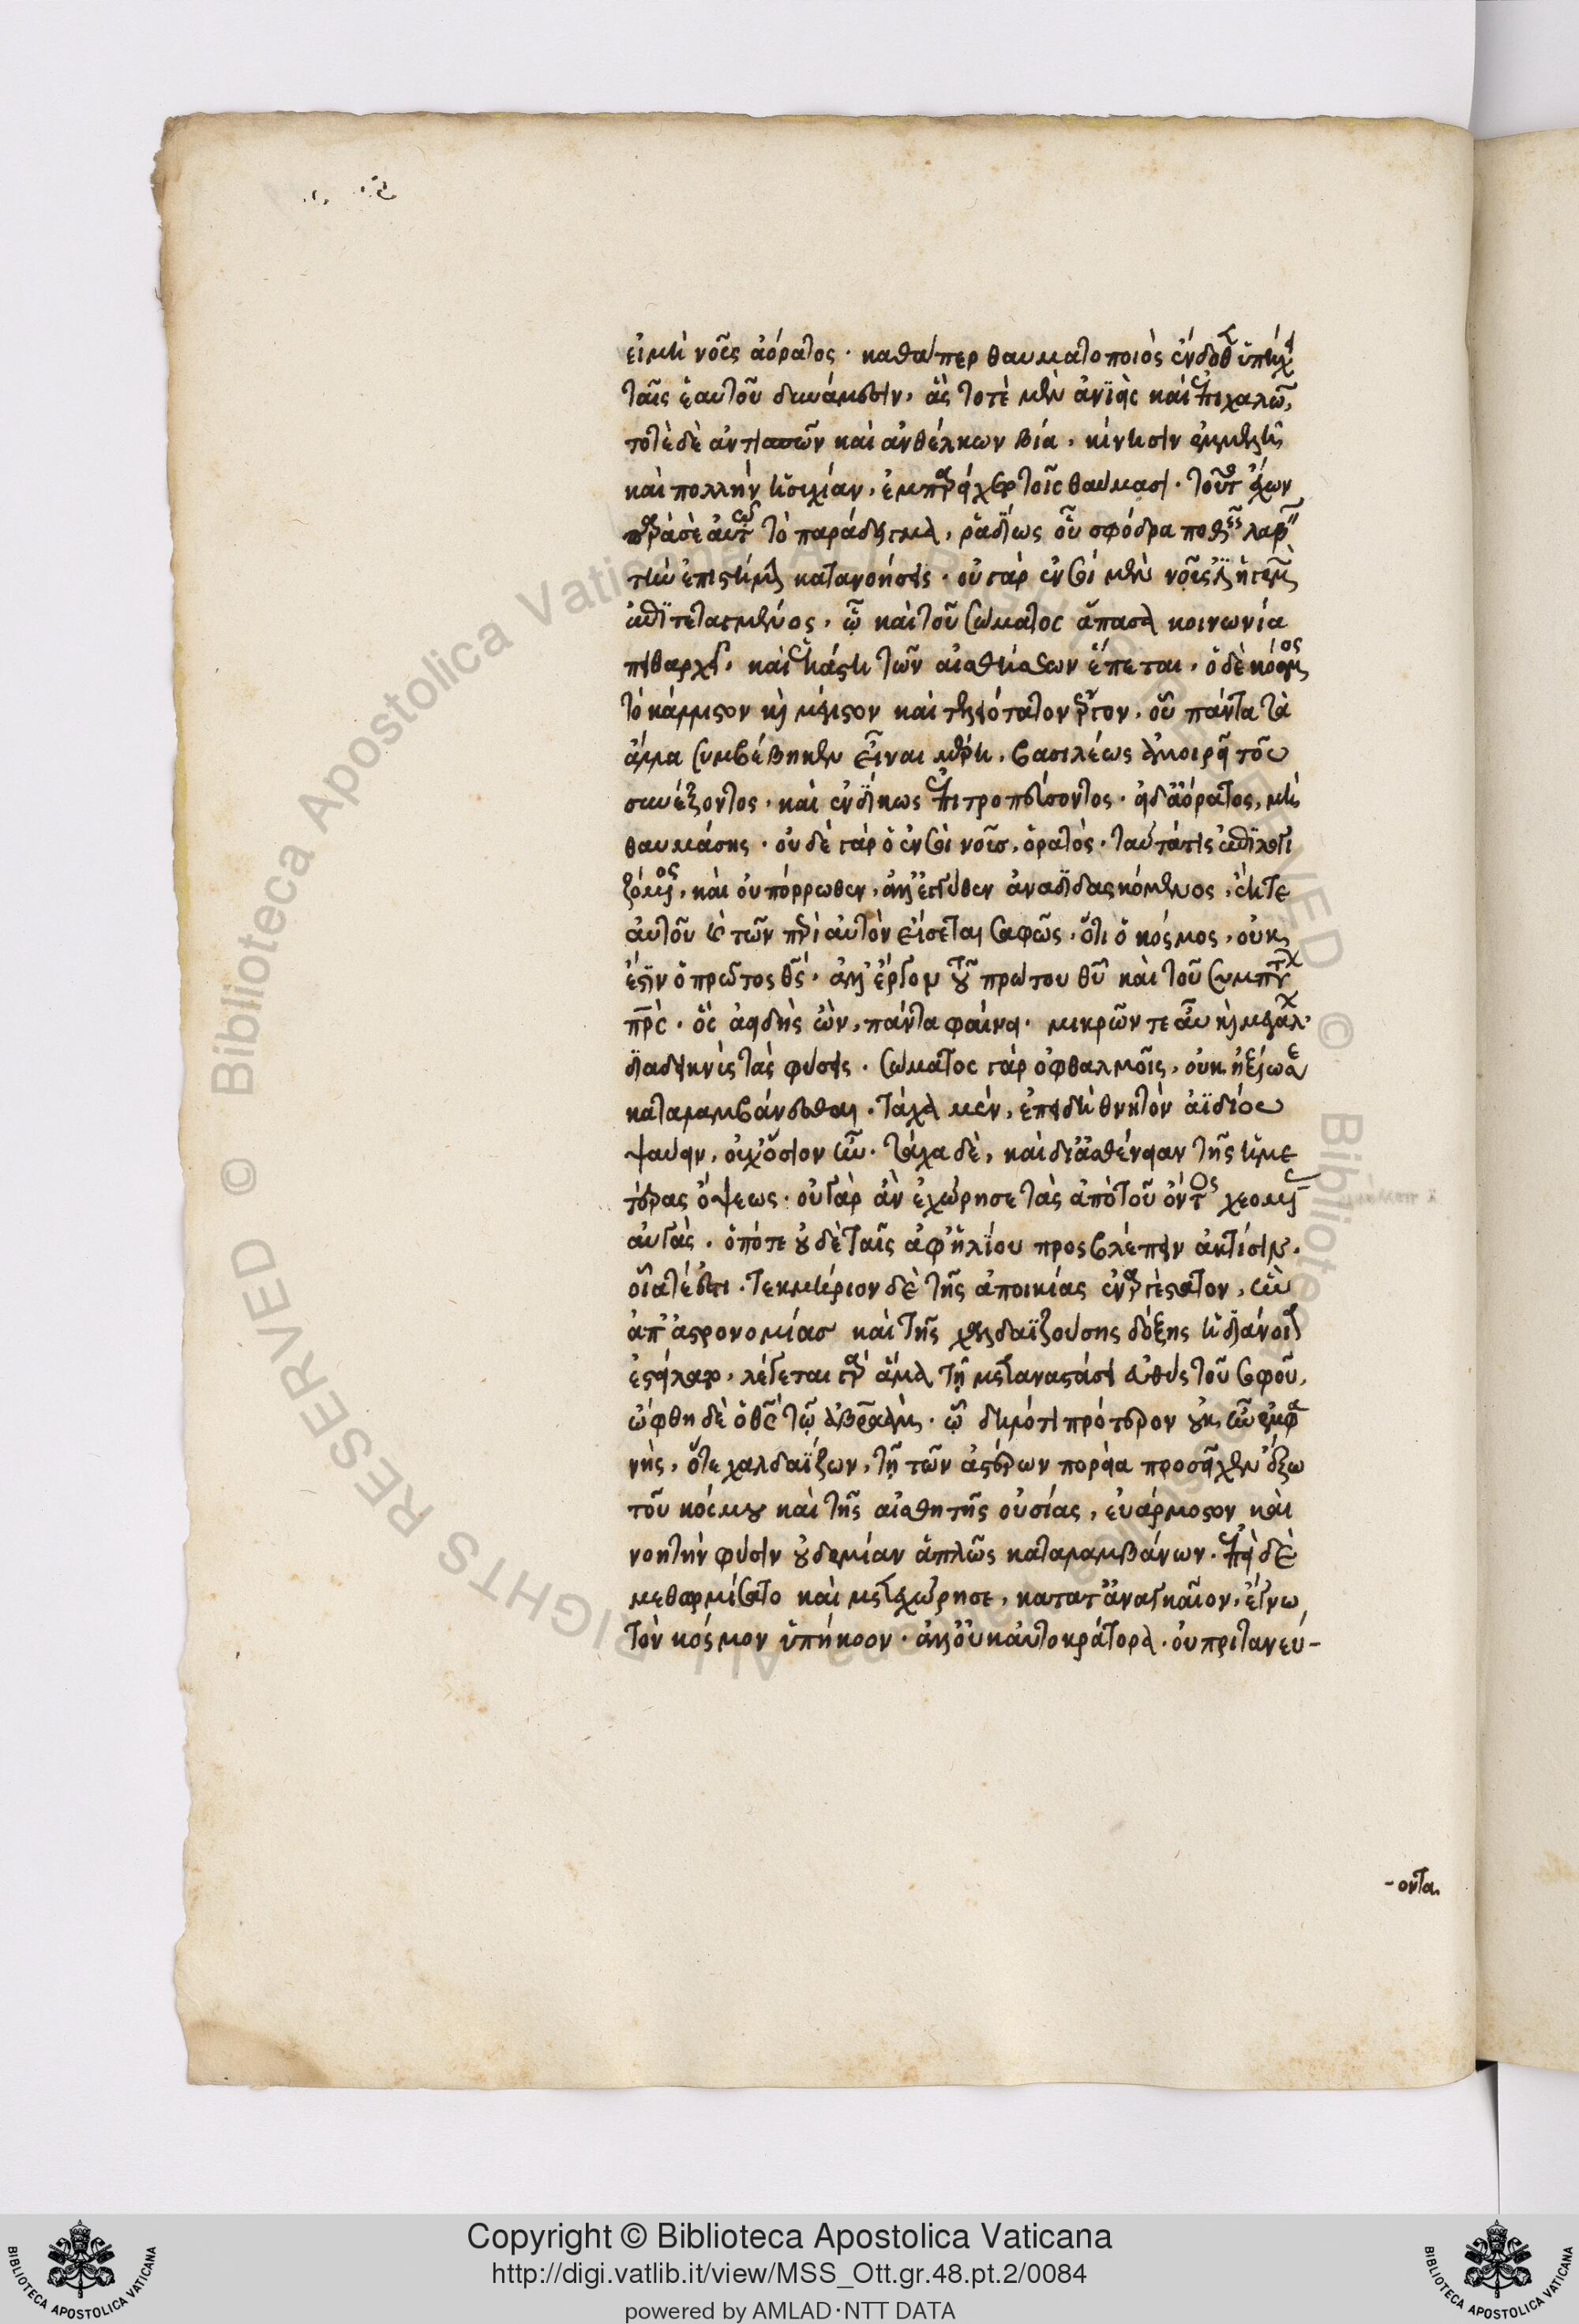 εἰ μὴ νοῦς ἀόρατος · καθάπερ θαυματοποιὸς ἔνδοθεν ὑπηχεῖ
ταῖς ἑαυτοῦ δυνάμεσιν, ἃς τοτὲ μὲν ἀνιεὶς καὶ ἐπιχαλῶν,
τοτὲ δὲ ἀντισπῶν καὶ ἀνθέλκων βία, κίνησιν ἐμμελῆ
καὶ πολλὴν ἡσυχίαν, ἐμπαρέχει τοῖς θαύμασι · τοῦτο ἔχων
παρὰ σεαυτῷ τὸ παράδειγμα, ῥᾳδίως οὗ σφόδρα ποθεῖς λαβεῖν
τὴν ἐπιστήμην κατανοήσεις · οὐ γὰρ ἐν σοὶ μὲν νοῦς ἐστιν ἡγεμὼν
ἐπιτεταγμένος, ᾧ καὶ τοῦ σώματος ἅπασα κοινωνία
πειθαρχεῖ, καὶ ἑκάστη τῶν αἰσθήσεων ἕπεται, ὁ δὲ κόσμος
τὸ κάλλιστον καὶ μέγιστον καὶ τελειότατον ἔργον, οὗ πάντα τὰ
ἄλλα συμβέβηκεν εἶναι μέρη, βασιλέως ἀμοιρεῖ τοῦ
συνέξοντος, καὶ ἐνδίκως ἐπιτροπεύσοντος · εἰ δ' ἀόρατος, μὴ
θαυμάσῃς · οὐδὲ γὰρ ὁ ἐν σοὶ νοῦς, ὁρατός · ταῦτά τις ἐπιλογι
ζόμενος, καὶ οὐ πόρρωθεν, ἀλλ' ἐγγύθεν ἀναδιδασκόμενος, ἔκ τε
αὐτοῦ καὶ τῶν περὶ αὐτὸν εἴσεται σαφῶς, ὅτι ὁ κόσμος, οὐκ
ἔστιν ὁ πρῶτος θς, ἀλλ' ἔργον τοῦ πρώτου θυ καὶ τοῦ συμπάντων
πρς · ὃς ἀειδὴς ὢν, πάντα φαίνει · μικρῶν τε αὖ καὶ μεγάλων
διαδεικνὺς τὰς φύσεις · σώματος γὰρ ὀφθαλμοῖς, οὐκ ἠξίωσε
καταλαμβάνεσθαι · τάχα μὲν, ἐπειδὴ θνητὸν ἀϊδίου
ψαύειν, οὐχ ὅσιον ἦν · τάχα δὲ, καὶ δι' ἀσθένειαν τῆς ἡμε
τέρας ὄψεως · οὐ γὰρ ἂν ἐχώρησε τὰς ἀπὸ τοῦ ὄντος χεομένας
αὐγὰς · ὁπότε οὐδὲ ταῖς ἀφ' ἡλίου προσβλέπειν ἀκτίσιν
οἵα τέ ἐστι · τεκμήριον δὲ τῆς ἀποικίας ἐναργέστατον, ἣν
ἀπ' ἀστρονομίας καὶ τῆς χαλδαϊζούσης δόξης ἡ διάνοια
ἐστείλατο, λέγεται γὰρ ἅμα τῇ μεταναστάσει εὐθὺς τοῦ σοφοῦ,
ὤφθη δὲ ὁ θς τῷ ἀβραὰμ · ᾧ δῆλον ὅτι πρότερον οὐκ ἦν ἐμφα
νὴς, ὅτε χαλδαΐζων, τῇ τῶν ἀστέρων πορείᾳ προσεῖχεν ἔξω
τοῦ κόσμου καὶ τῆς αἰσθητῆς οὐσίας, εὐάρμοστον καὶ
νοητὴν φύσιν οὐδεμίαν ἁπλῶς καταλαμβάνων · ἐπεὶ δὲ
μεθωρμίσατο καὶ μετεχώρησε, κατὰ τἀναγκαῖον, ἔγνω
τὸν κόσμον ὑπήκοον · ἀλλ' οὐκ αὐτοκράτορα · οὐ πρυτανεύ-
-οντα.